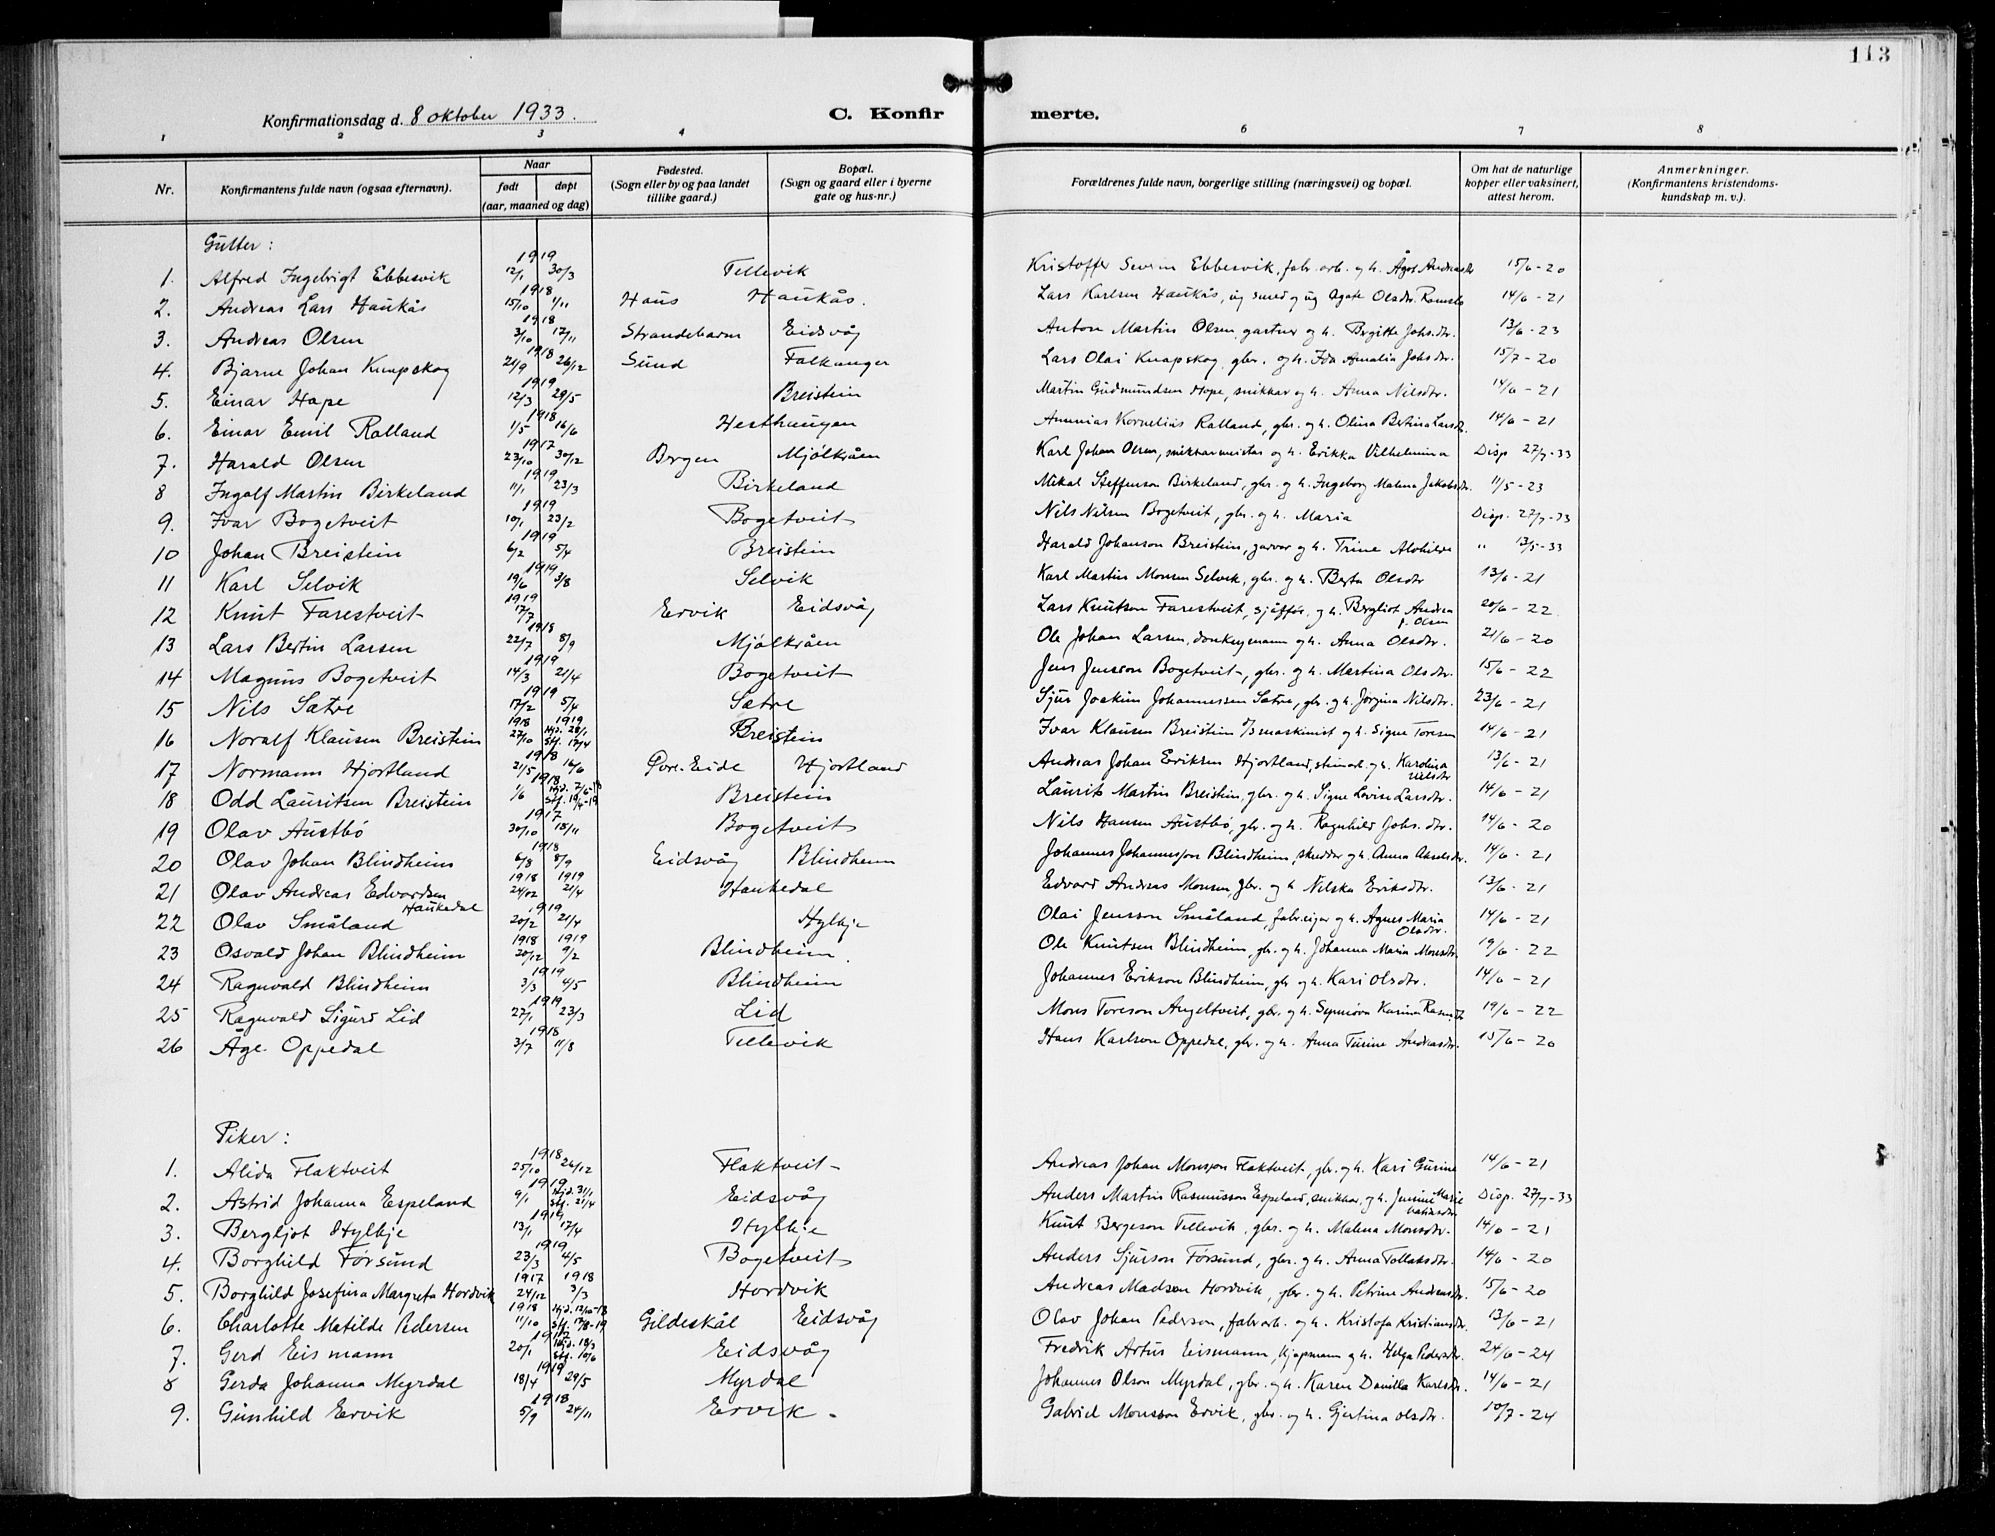 113
Konfirmationsdag d. 8 oktober 1933. C. Konfirmerte.
1 2 3 4 6 7 8
Nr. Konfirmantens fulde navn (ogsaa efternavn). Naar født døpt (aar, maaned og dag) Fødested. (Sogn eller by og paa landet tillike gaard.) Bopæl. (Sogn og gaard eller i byerne gate og hus-nr.) Forældrenes fulde navn, borgerlige stilling (næringsvei) og bopæl. Om hat de naturlige kopper eller vaksinert, attest herom. Anmerkninger. (Konfirmantens kristendomskundskap m. v.).
Gutter:
1. Alfred Ingebrigt Ebbesvik 1919 12/1 30/3 Tellevik Kristoffer Severin Ebbesvik, fabr. arb. og h. 15/6-20
2. Andreas Lars Haukås 1918 15/10 1/11 Haus Haukås. Lars Karlsen Haukås, ug smed og ug Agate Olsdtr. 14/6-21
3. Andreas Olsen 1918 3/10 17/11 Strandebarm Eidsvåg Anton Martin Olsen, gartner og h. Birgitte Johs.dtr. 13/6-23
4. Bjarne Johan Knapskog 1918 21/9 26/12 Sund Falkanger Lars Olai Knapskog, gbr. og h. Ida Amalia Johsdtr. 15/7-20
5. Einar Hope 1919 12/3 29/5 Breistein Martin Gudmundsen Hope, snikkar og h. Anna Nilsdtr. 14/6-21
6. Einar Emil Ralland 1918 1/5 16/6 Hesthaugen Kornelius Ralland, gbr. og h. Olina Bertina Larsdtr. 14/6-21
7. Harald Olsen 1917 23/10 30/12 Bergen Mjølkråen Karl Johan Olsen, snikkarmeister og h. Erikka Vilhelmina Disp 27/7-33
8 Ingolf Martin Birkeland 1919 11/1 23/3 Birkeland Mikal Steffenson Birkeland, gbr. og h. Ingeborg Malena Jakobsdtr. 11/5-23
9. Ivar Bogetveit 1919 10/1 23/2 Bogetveit Nils Nilsen Bogetveit, gbr. og h. Maria Disp. 27/7-33
10 Johan Breistein 1919 6/2 5/4 Breistein Harald Johanson Breistein, garver og h. Trine Alvhilde " 13/5-33
11 Karl Selvik 1919 19/6 3/8 Selvik Karl Martin Monsen Selvik, gbr. og h. Berta Olsdtr 13/6-21
12 Knut Farestveit 1919 17/7 Ervik Eidsvåg Lars Knutson Farestveit, sjåfør, og h. Bergliot Andrea f. Olsen 20/6-22
13 Lars Bertin Larsen 1918 22/7 8/9 Mjølkråen Ole Johan Larsen, donkeymann og h. Anna Olsdtr. 21/6-20
14 Magnus Bogetveit 1919 14/3 21/4 Bogetveit Jens Jensson Bogetveit, gbr. og h. Martina Olsdtr. 15/6-22
15 Nils Sætre 1919 17/2 5/4 Sætre Sjur Joakim Johannessen Sætre, gbr. og h. Jorgina Nilsdtr. 23/6-21
16 Noralf Klausen Breistein 1918 1919 27/10 Hjd. 28/1 Stf. 17/4 Breistein Ivar Klausen Breistein maskinist og h. Signe Toresen 14/6-21
17 Normann Hjortland 1918 21/5 16/6 Øvre-Eide Hjortland Andreas Johan Eriksen Hjortland, steinarb. og h. Karolina Nilsdtr 13/6-21
18 Odd Lauritsen Breistein 1918 1/6 Hjd. 7/6-18 Stf. 19/4-19 Breistein Laurits Martin Breistein, gbr. og h. Signe Lovise Larsdtr. 14/6-21
19 Olav Austbø 1917 30/10 18/11 Bogetveit Nils Hansen Austbø, gbr. og h. Ragnhild Johs. dtr. 14/6-20
20 Olav Johan Blindheim 1918 6/8 8/9 Eidsvåg Blindheim Johannes Johannesson Blindheim, skredder og h. Anna Akselsdtr. 14/6-21
21 Olav Andreas Edvardsen Haukedal 1918 1919 24/12 21/4 Haukedal Edvard Andreas Monsen, gbr. og h. Nilska Eriksdtr. 13/6-21
22 Olav Småland 1919 20/2 21/4 Hylkje Olai Jensson Småland, fabr. eigar og h. Agnes Maria Olsdtr. 14/6-21
23 Osvald Johan Blindheim 1918 1919 20/12 9/2 Blindheim. Ole Knutsen Blindheim, gbr. og h. Johanna Maria Monsdtr. 19/6-22
24 Ragnvald Blindheim 1919 3/3 4/5 Blindheim Johannes Erikson Blindheim, gbr og h. Kari Olsdtr. 14/6-21
25 Ragnvald Sigurd Lid 1919 27/1 23/3 Lid Mons Toreson Angeltveit, gbr. og h. Synnøva Karina 19/6-22
26 Åge Oppedal 1918 3/7 11/8 Tellevik Hans Karlson Oppedal, gbr. og h. Anna Turine Andreasdtr. 15/6-20
Piker:
1. Alida Flaktveit 1918 25/10 26/12 Flaktveit Andreas Johan Monsson Flaktveit, gbr. og h. Kari Gurine 14/6-21
2. Astrid Johanna Espeland 1919 9/1 Hjd. 31/1 Stf. 21/4 Eidsvåg Anders Martin Rasmusson Espeland, snikkar, og h. Jensine Marie Disp. 27/7-33
3. Bergljot Hylkje 1919 13/1 17/4 Hylkje Knut Bergeson Tellevik, gbr. og h. Malena Monsdtr. 14/6-21
4. Borghild Førsund 1919 23/3 4/5 Bogetveit Anders Sjurson Førsund, gbr. og h. Anna Tollaksdtr. 14/6-20
5. Borghild Josefina Margreta Hordvik 1917 1918 24/12 3/3 Hordvik Andreas Madsen Hordvik, gbr. og h. Petrine Andreasdtr. 15/6-20
6. Charlotte Matilde Pedersen 1918 11/10 Hjd. 12/10-18 Stf. 17/8-19 Gildeskål Eidsvåg Olav Johan Pederson, fabr arb. og h. Kristofa Kristiansdtr. 13/6-21
7. Gerd Eismann 20/1 Hjd. 18/3 Stf. 10/6 Eidsvåg Fredrik Artur Eismann, kjøpmann og h. Helga Pedersdtr. 24/6-24
8 Gerda Johanna Myrdal 1919 18/4 29/5 Myrdal Johannes Olson Myrdal, gbr. og h. Karen Danilla Karlsdtr. 14/6-21
9. Gunhild Ervik 1918 5/9 24/11 Ervik. Gabriel Monsson Ervik, gbr. og h. Gjertina Olsdtr. 10/7-24